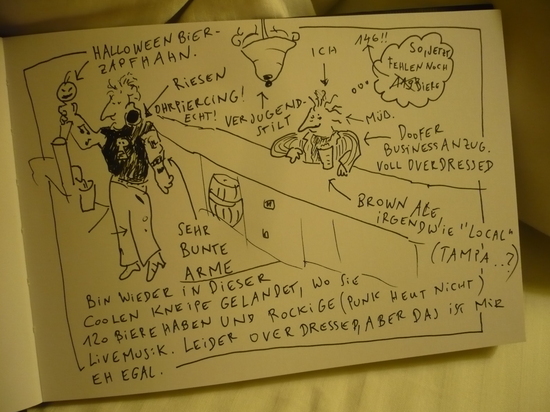 HALLOWEENBIER-
ZAPFHAHN.
RIESEN
OHRPIERCING!
ECHT!
VERJUGEND-
STILT
ICH
146!!
SO, JETZT
FEHLEN NOCH
BIERE
MÜD.
DOOFER
BUSINESSANZUG.
VOLL OVERDRESSED
BROWN ALE
IRGENDWIE "LOCAL"
(TAMPA..?)
SEHR
BUNTE
ARME
BIN WIEDER IN DIESER
COOLEN KNEIPE GELANDET, WO SIE
120 BIERE HABEN UND ROCKIGE (PUNK HEUT NICHT)
LIVEMUSIK. LEIDER OVERDRESSED, ABER DAS IST MIR
EH EGAL.